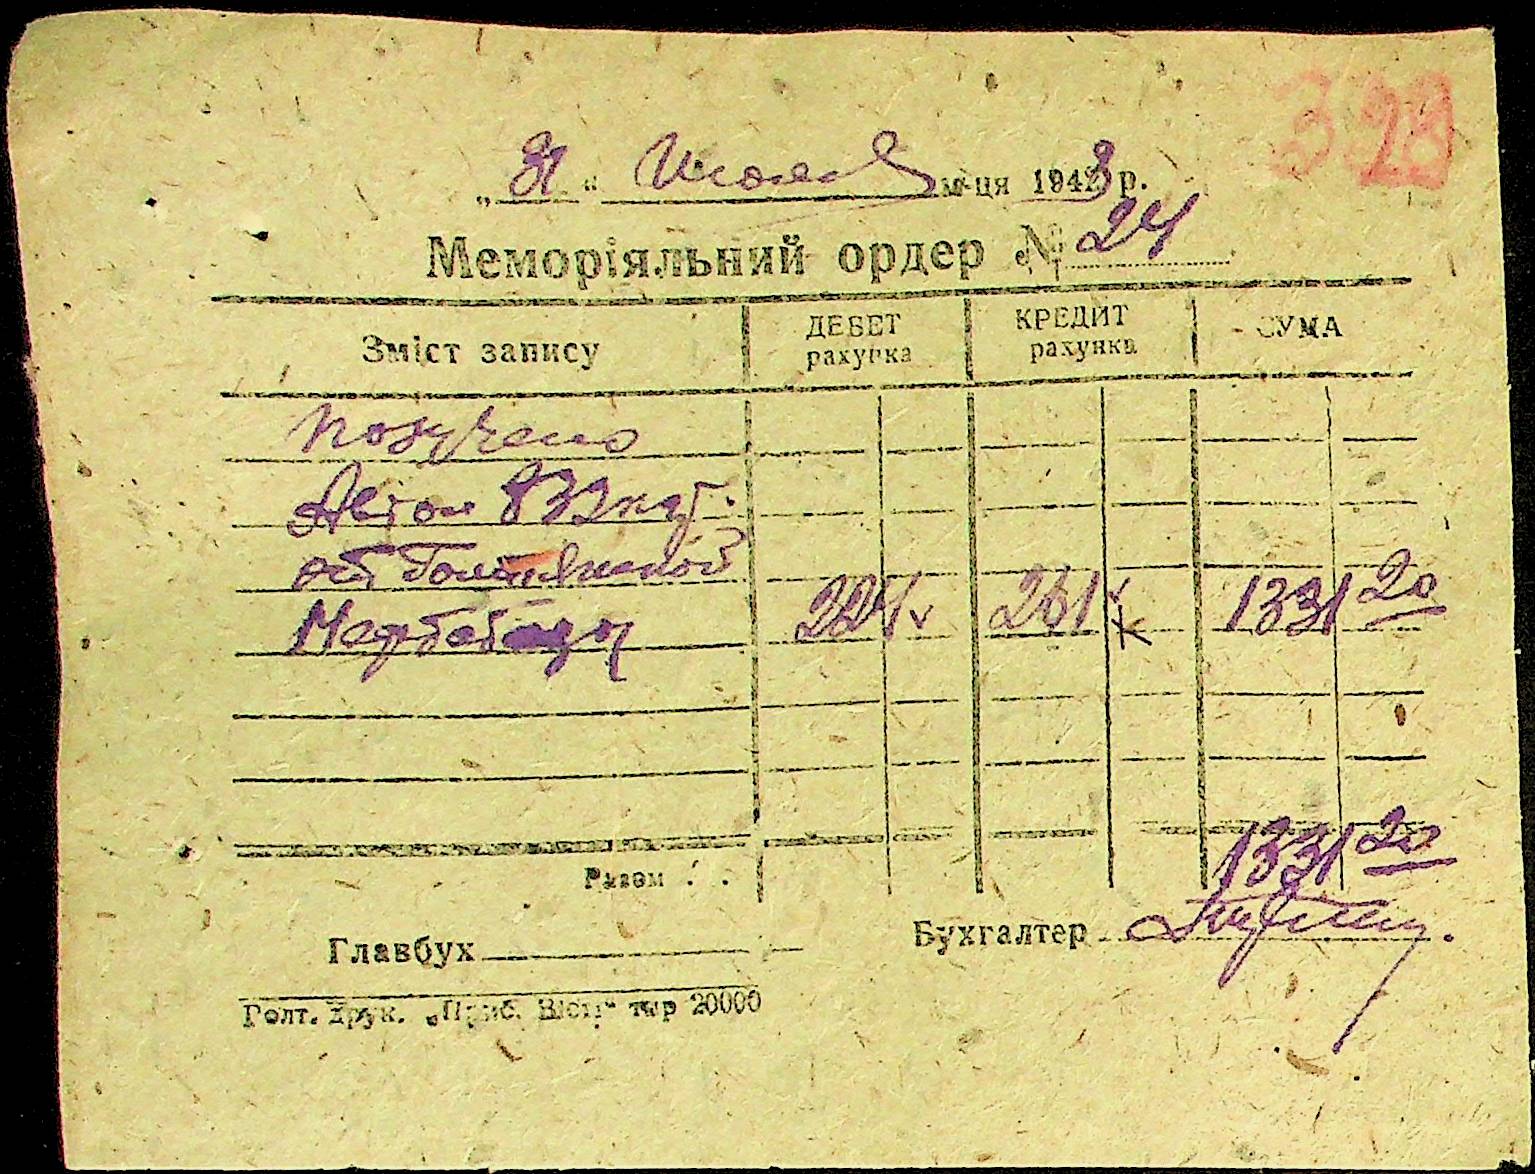 328
„31“ Июля м-ця 1943 р.
Меморіяльний ордер № 24
Зміст запису ДЕБЕТ рахунка КРЕДИТ рахунка СУМА
Получено
Автол 832 кг.
от
224 v 261 v 1331 20
Разом . . 1331 20
Главбух Бухгалтер
Голт. друк. „Приб. Вісті“ тир 20000